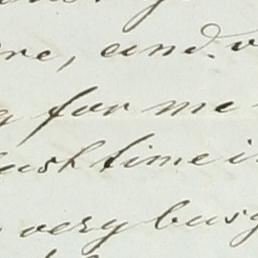 and
for me
last time i
very busy